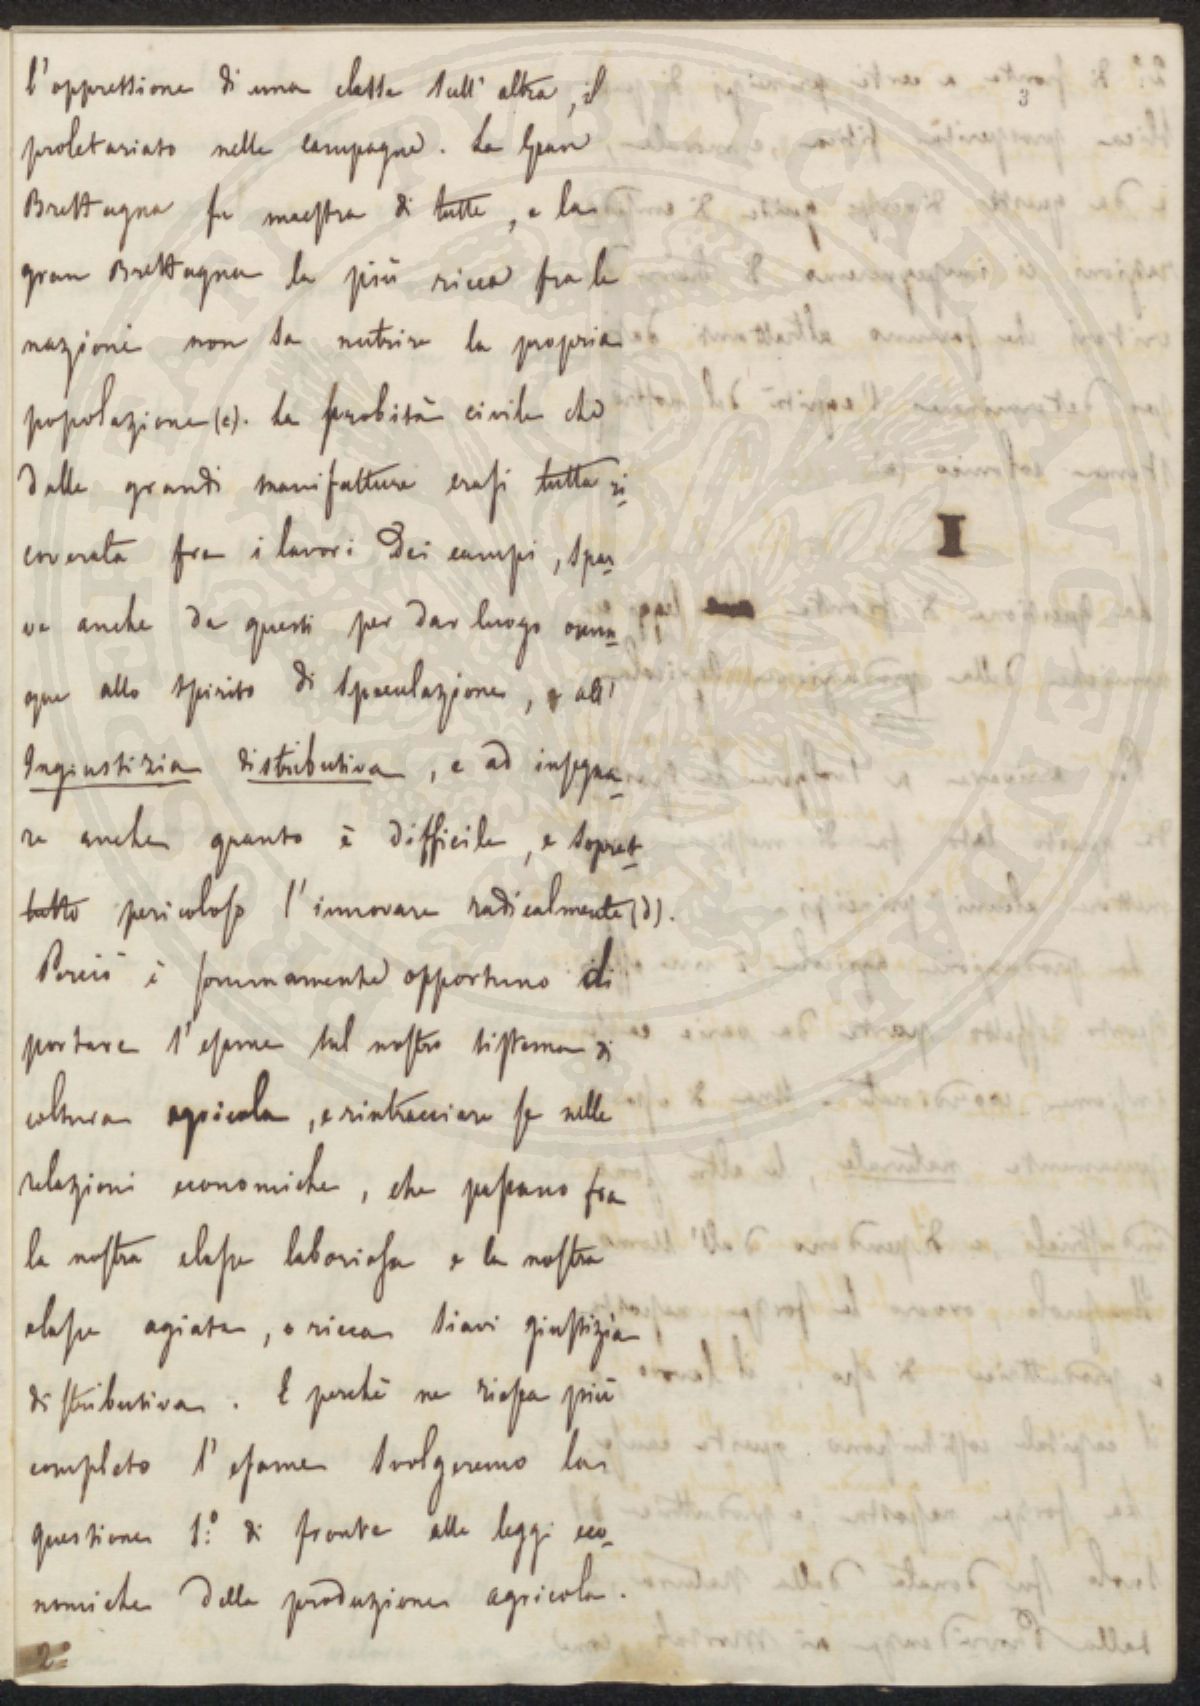 3
l'oppressione di una classe sull'altra, il
proletariato nelle campagne. La Gran
Brettagna fu maestra di tutte, e la
gran Brettagna la più ricca fra le
nazioni non sa nutrire la propria
popolazione (c). La probità civile che
dalle grandi manifatture erasi tutta ri-
coverata fra i lavori dei campi, spar-
ve anche da questi per dar luogo ovun-
que allo spirito di speculazione, e all'
Ingiustizia distributiva, e ad insegna-
re anche quanto è difficile, e soprat-
tutto pericoloso l'innovare radicalmente (d).
Perciò è sommamente opportuno di
portare l'esame sul nostro sistema di
coltura agricola, e rintracciare se nelle
relazioni economiche, che passano fra
la nostra classe laboriosa e la nostra
classe agiata, o ricca siavi giustizia
distributiva. E perchè ne riesca più
completo l'esame svolgeremo la
questione 1.º di fronte alle leggi eco-
nomiche della produzione agricola.
2º
I